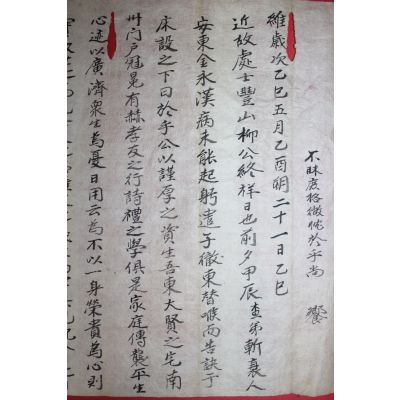 不昧庶格微忱於乎尙 饗
維歲次乙巳五月乙酉朔二十一日乙巳
近故處士豐山柳公終祥日也前夕甲辰査弟斬衰人
安東金永漢病未能起躬遣子徵東替喉而告訣于
床設之下曰於乎公以謹厚之資生吾東大賢之宅南
州门戶冠冕有赫孝友之行詩禮之學俱是家庭傳襲平生
心迹以廣濟衆生爲憂日用云爲不以一身榮貴爲心則